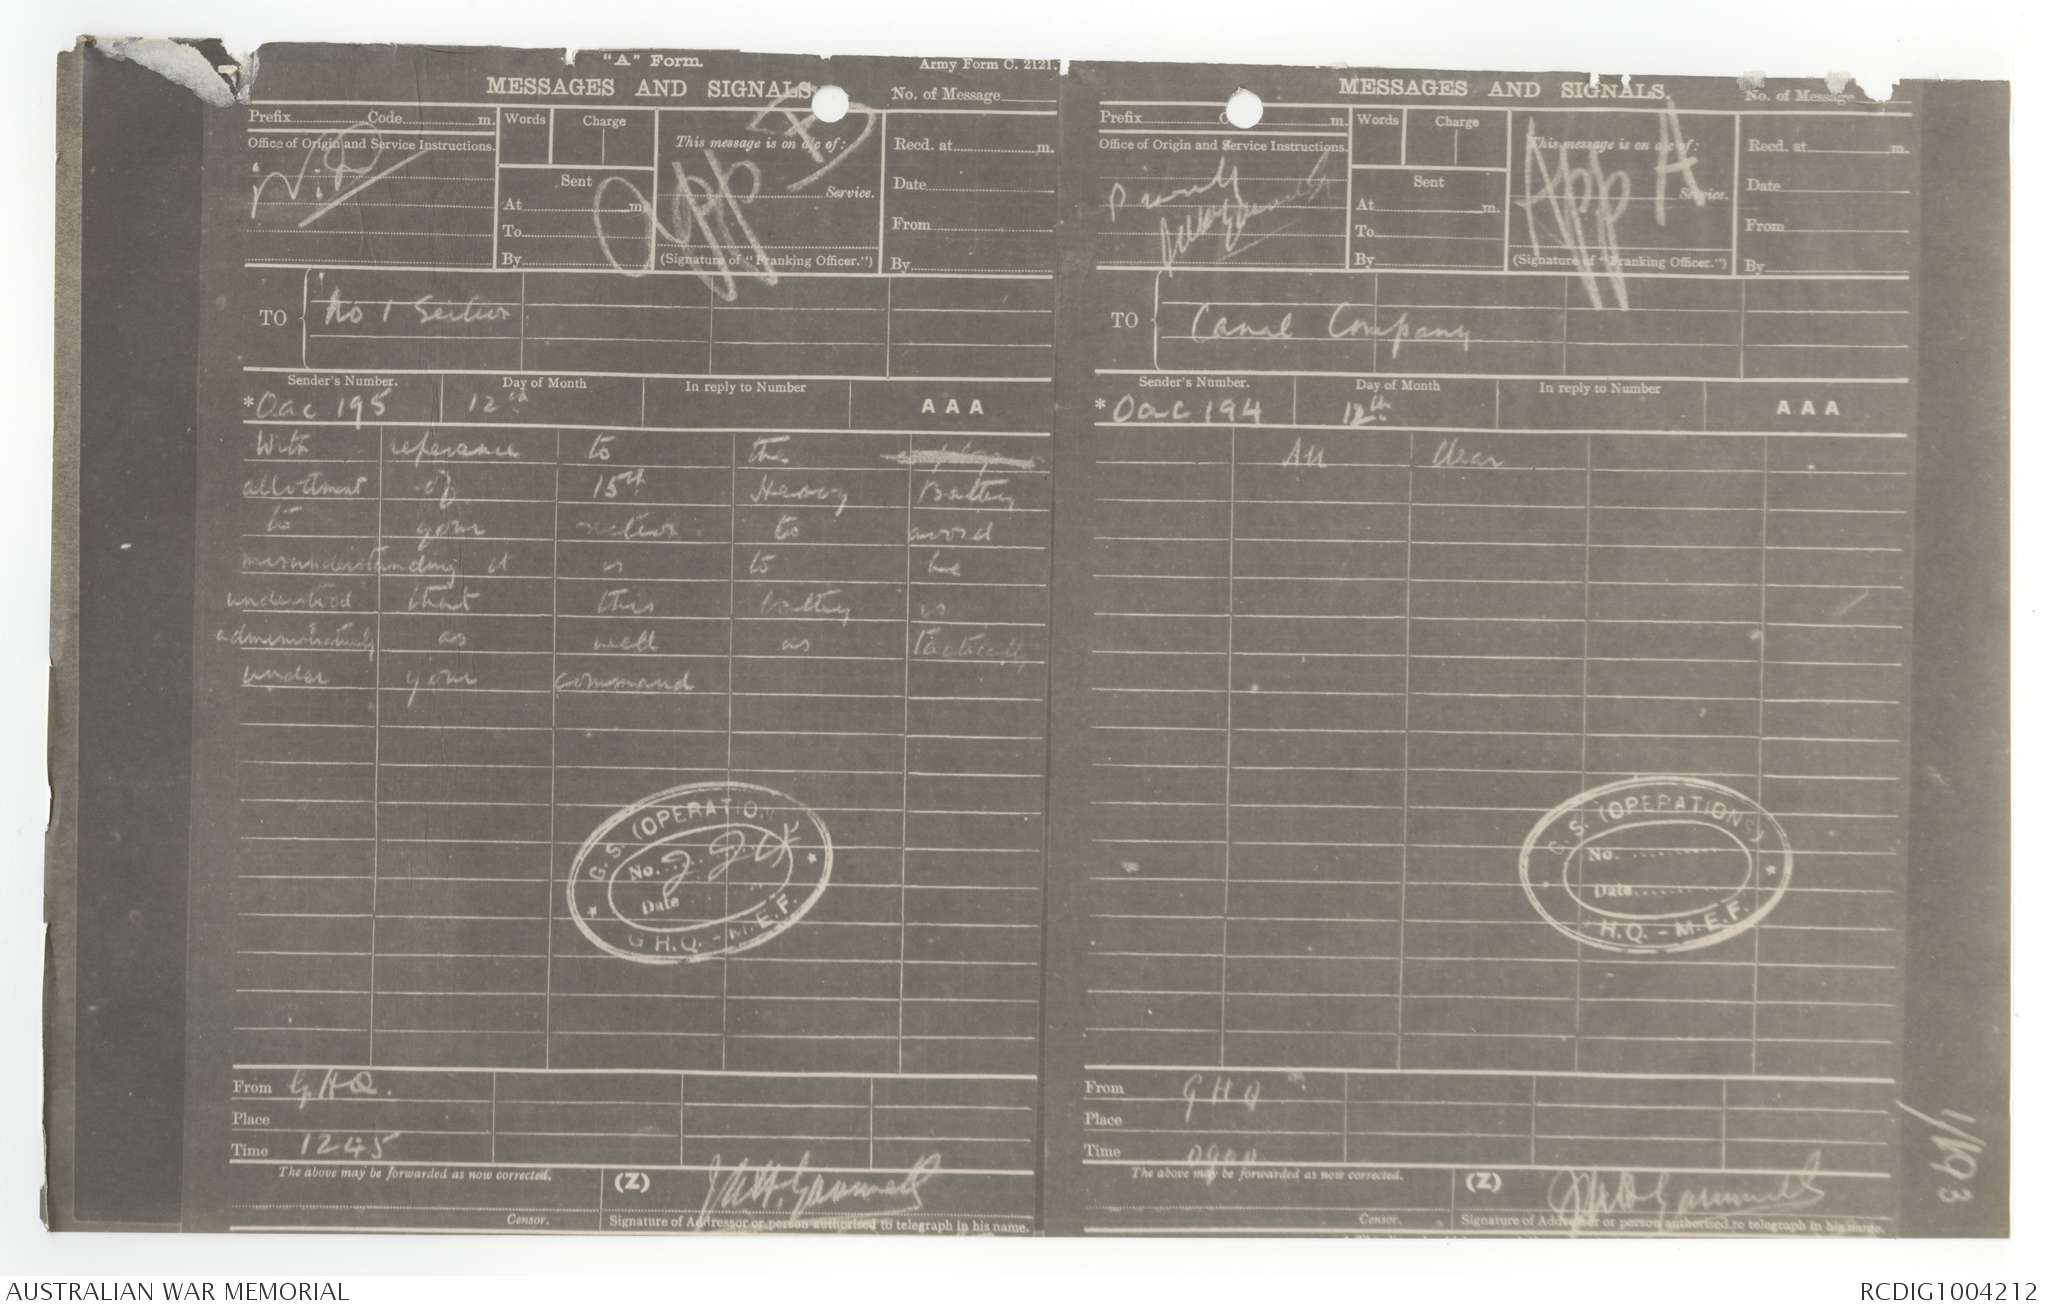 "A" Form.
Army Form C. 2121.
MESSAGES AND SIGNALS
No. of Message
Prefix Code m.
Words Charge
This message is on a/c of:
Recd. at m.
Office of Origin and Service Instructions.
App B
Sent
Service.
Date
At m
From
To
By
(Signature of "Franking Officer.")
By
TO No 1 Section
Sender's Number. Day of Month In reply to Number
*Oac 195 12th AAA
With reference to the
allottment of 15th Heavy Battery
to your section to avoid
misunderstanding it is to be
understood that this battery is
administratively as well as tactically
under your command
G.S. (OPERATION
No.
Date
G.H.Q. - M.E.F.
From GHQ.
Place
Time 1245
The above may be forwarded as now corrected. (Z)
Censor. Signature of Addressor or person authorised to telegraph in his name.
MESSAGES AND SIGNALS.
No. of Message
Prefix C m.
Words Charge
This message is on a/c of:
Recd. at m.
Office of Origin and Service Instructions.
App A
Sent
Service.
Date
At m.
From
To
By
(Signature of "Franking Officer.")
By
TO Canal Company
Sender's Number. Day of Month In reply to Number
*Oac 194 12th AAA
All clear
G.S. (OPERATIONS)
No.
Date
H.Q. - M.E.F.
From GHQ
Place
Time 0900
The above may be forwarded as now corrected. (Z)
Censor. Signature of Addressor or person authorised to telegraph in his name.
AUSTRALIAN WAR MEMORIAL
RCDIG1004212